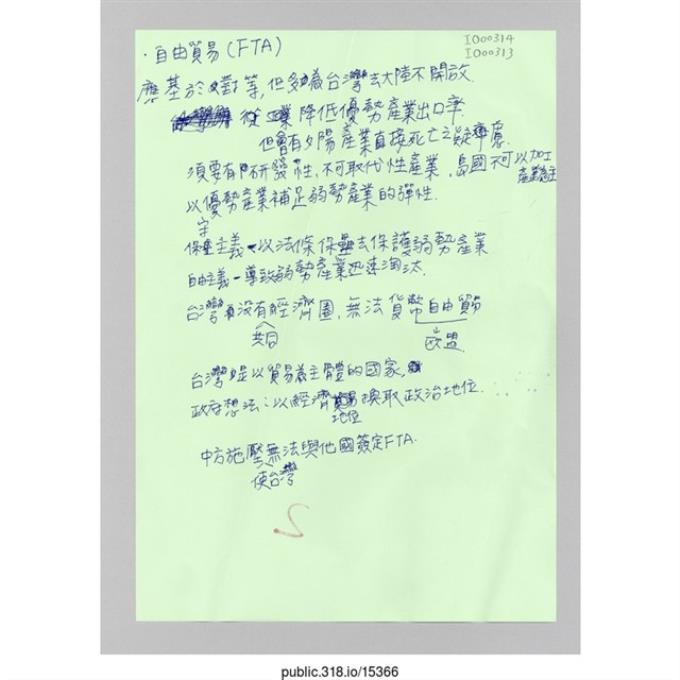 IO00314
IO00313
·自由貿易(FTA)
應基於對等,但多為台灣去大陸不開放.
從 業 降低優勢產業出口率.
但會有夕陽產業直接死亡之疑慮.
須要有研發性,不可取代性產業,島國不可以加工
產業為主
以優勢產業補足弱勢產業的彈性.
守
保 主義-以法條保壘去保護弱勢產業
自由主義-導致弱勢產業迅速淘汰.
台灣 沒有經濟圈,無法貨幣自由貿易
共同
歐盟.
台灣是以貿易為主體的國家,
政府想法:以經濟 換取政治地位.
地位
中方施壓無法與他國簽定FTA.
使台灣
public.318.io/15366